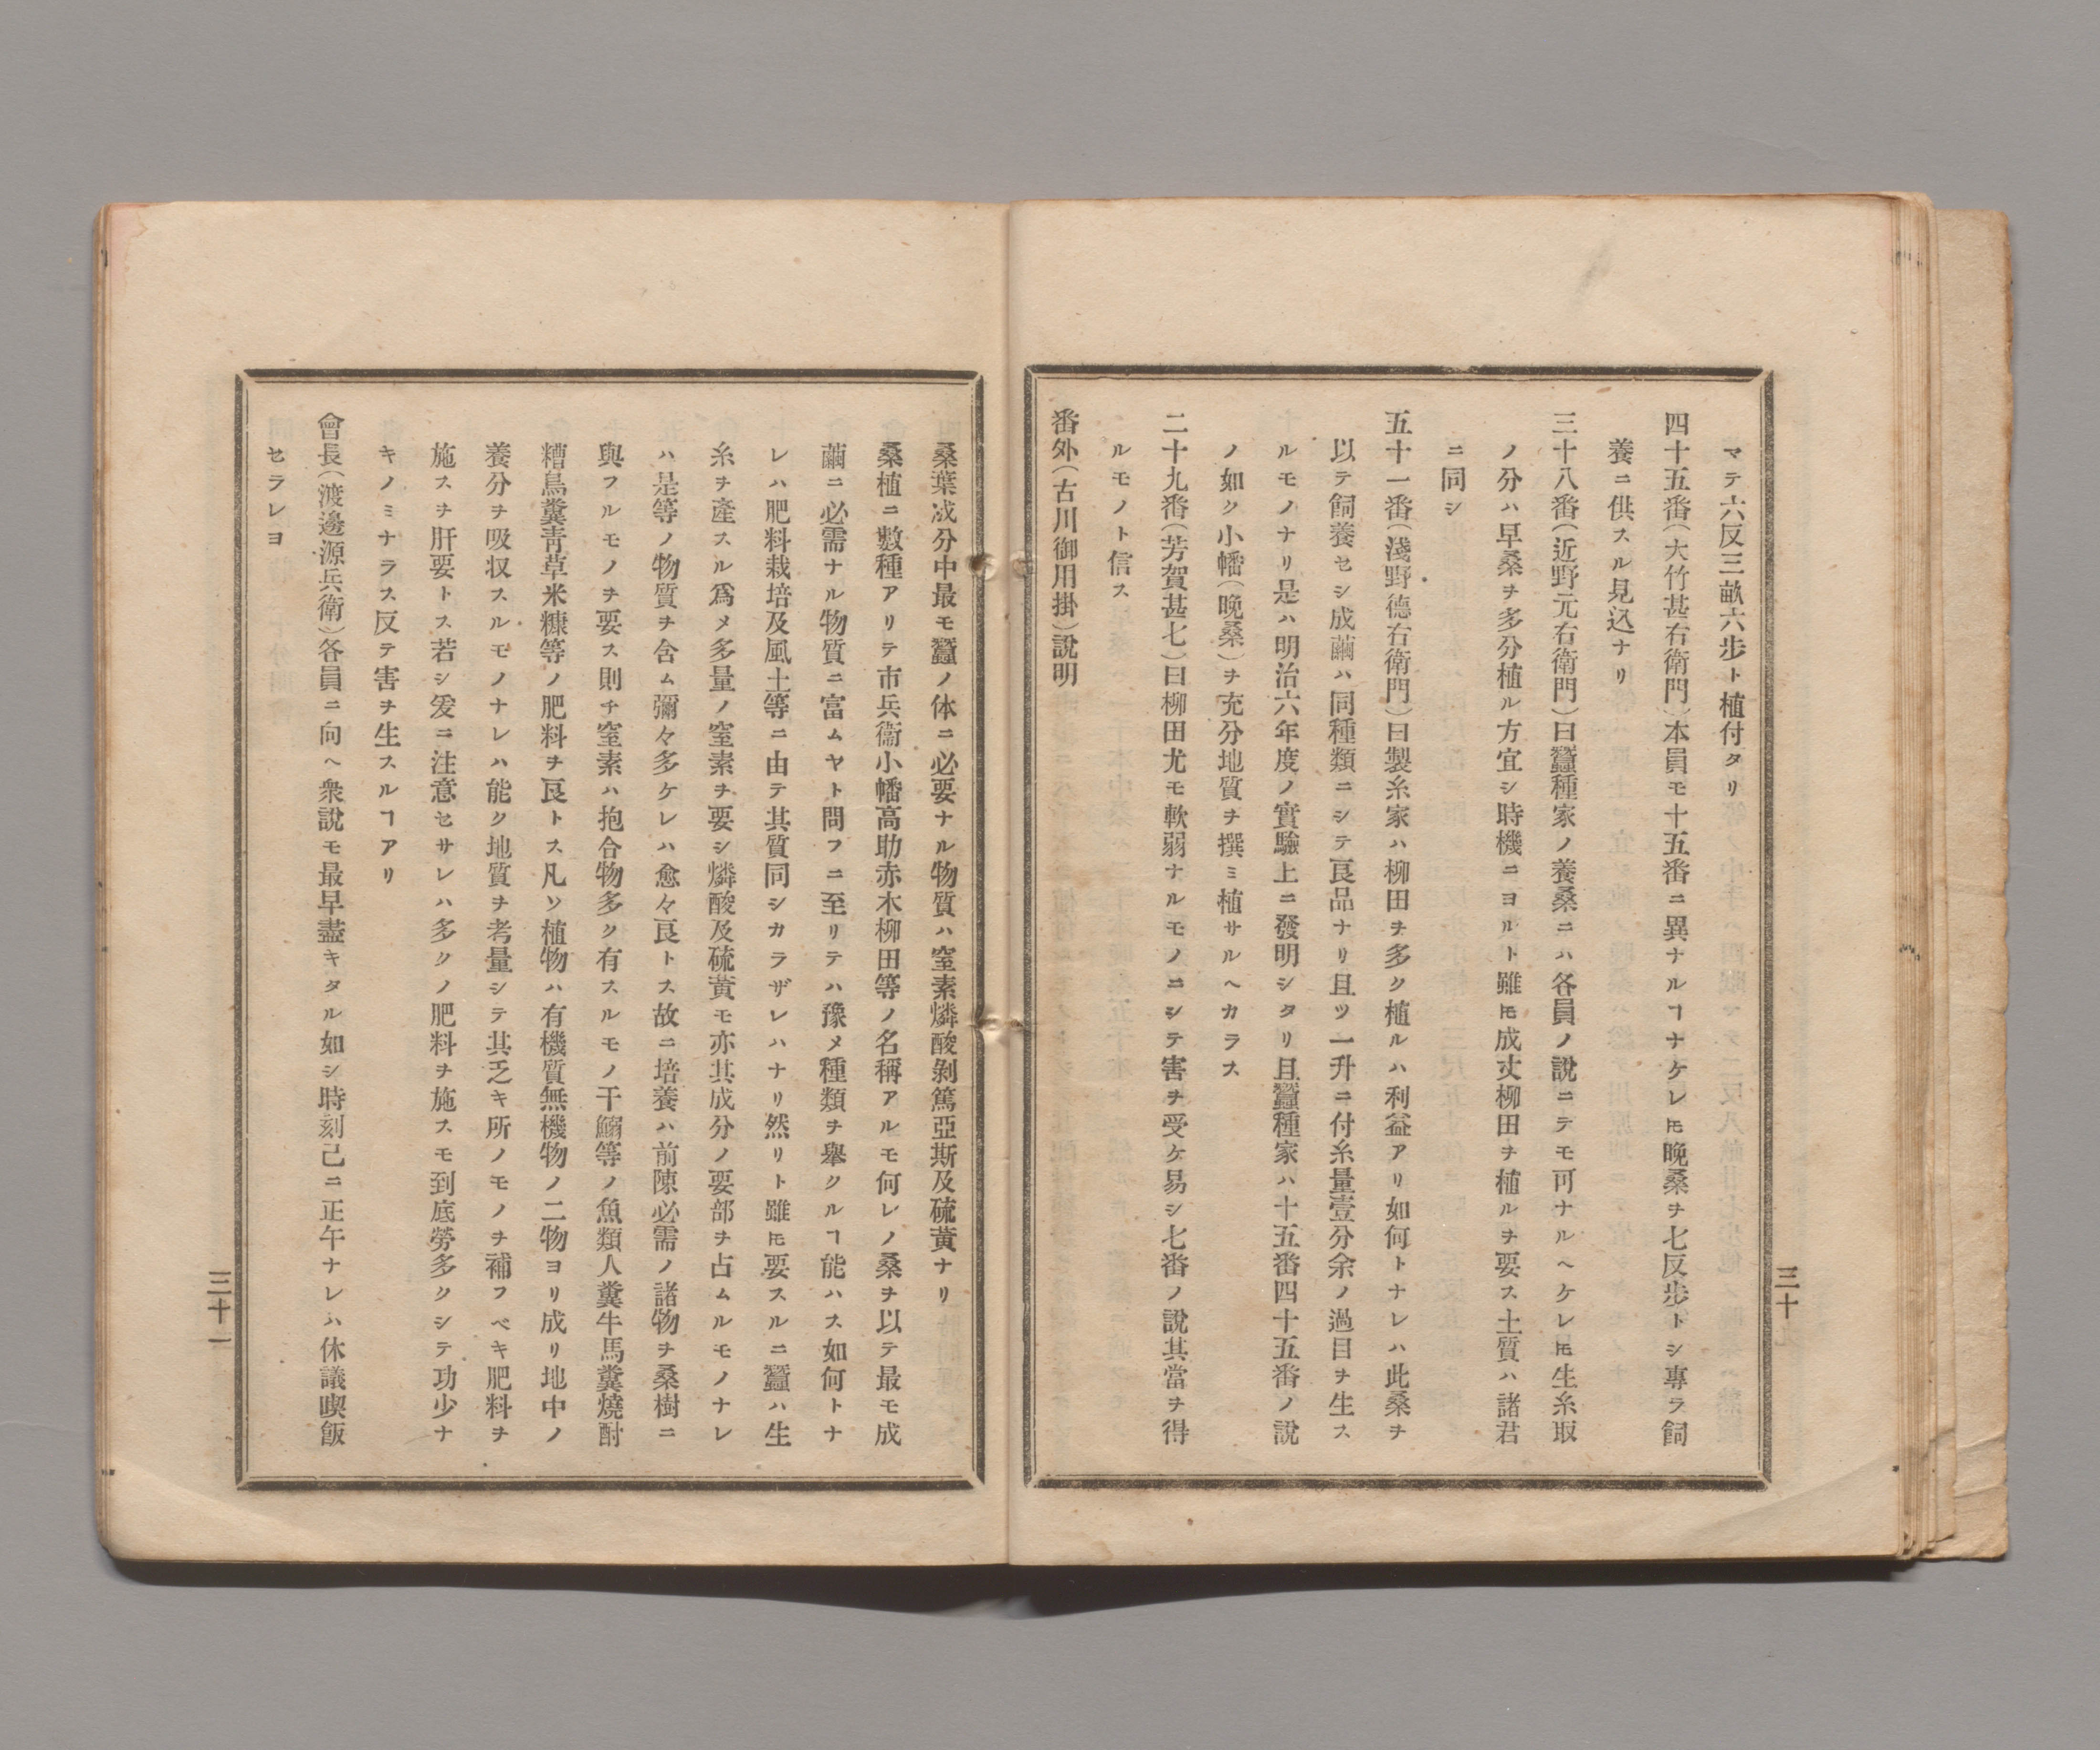 マテ六反三畝六步ト植付タリ
四十五番（大竹甚右衛門）本員モ十五番ニ異ナルヿナケレ𪜈晩桑ヲ七反步トシ專ラ飼
養ニ供スル見込ナリ
三十八番（近野元右衛門）曰蠶種家ノ養桑ニハ各員ノ說ニテモ可ナルヘケレ𪜈生糸取
ノ分ハ早桑ヲ多分植ル方宜シ時機ニヨルト雖𪜈成丈柳田ヲ植ルヲ要ス土質ハ諸君
ニ同シ
五十一番（淺野德右衛門）曰製糸家ハ柳田ヲ多ク植ルハ利益アリ如何トナレハ此桑ヲ
以テ飼養セシ成繭ハ同種類ニシテ良品ナリ且ツ一升ニ付糸量壹分余ノ過目ヲ生ス
ルモノナリ是ハ明治六年度ノ實驗上ニ發明シタリ且蠶種家ハ十五番四十五番ノ說
ノ如ク小幡（晩桑）ヲ充分地質ヲ撰ミ植サルヘカラス
二十九番（芳賀甚七）曰柳田尤モ軟弱ナルモノニシテ害ヲ受ケ易シ七番ノ說其當ヲ得
ルモノト信ス
番外（古川御用掛）說明
三十
桑葉成分中最モ蠶ノ体ニ必要ナル物質ハ窒素燐酸剝篤亞斯及硫黃ナリ
桑植ニ數種アリテ市兵衞小幡高助赤木柳田等ノ名稱アルモ何レノ桑ヲ以テ最モ成
繭ニ必需ナル物質ニ富ムヤト問フニ至リテハ豫メ種類ヲ擧クルヿ能ハス如何トナ
レハ肥料栽培及風土等ニ由テ其質同シカラザレハナリ然リト雖𪜈要スルニ蠶ハ生
糸ヲ產スル爲メ多量ノ窒素ヲ要シ燐酸及硫黃モ亦其成分ノ要部ヲ占ムルモノナレ
ハ是等ノ物質ヲ含ム彌々多ケレハ愈々良トス故ニ培養ハ前陳必需ノ諸物ヲ桑樹ニ
與フルモノヲ要ス則チ窒素ハ抱合物多ク有スルモノ干鰯等ノ魚類人糞牛馬糞燒酎
糟鳥糞靑草米糠等ノ肥料ヲ良トス凡ソ植物ハ有機質無機物ノ二物ヨリ成リ地中ノ
養分ヲ吸収スルモノナレハ能ク地質ヲ考量シテ其乏キ所ノモノヲ補フベキ肥料ヲ
施スヲ肝要トス若シ爰ニ注意セサレハ多クノ肥料ヲ施スモ到底勞多クシテ功少ナ
キノミナラス反テ害ヲ生スルヿアリ
會長（渡邊源兵衛）各員ニ向ヘ衆說モ最早盡キタル如シ時刻已ニ正午ナレハ休議喫飯
セラレヨ
三十一